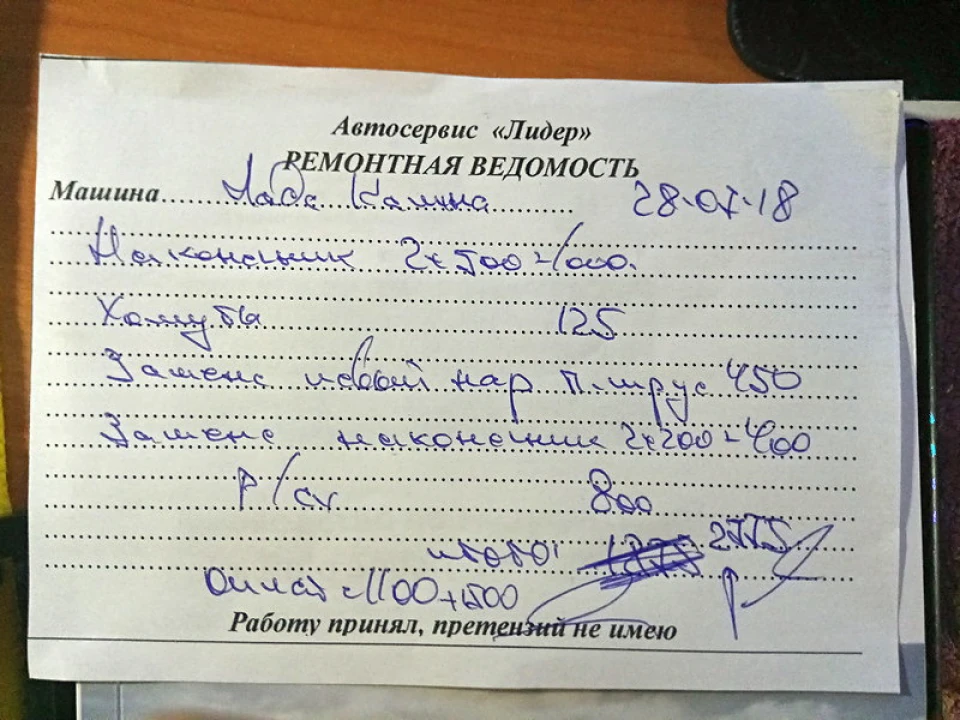 Автосервис «Лидер»
РЕМОНТНАЯ ВЕДОМОСТЬ
Машина Лада Калина 28.07.18
Наконечник 2х500=1000.
Хомуты 125
Замена левый нар п. шрус 450
Замена наконечник 2х200=400
р/сх 800
итого: 1875 2775
Оплат =1100+1500
Работу принял, претензий не имею